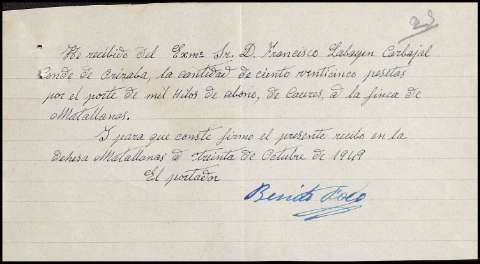 23
He recibido del Exmº Sr. D. Francisco Labayen Carbajal
Conde de Orizaba, la cantidad de ciento veinticinco pesetas
por el porte de mil kilos de abono, de Cáceres, á la finca de
Matallanas.
Y para que conste firmo el presente recibo en la
dehesa Matallanas á treinta de Octubre de 1949
El portador
Benito